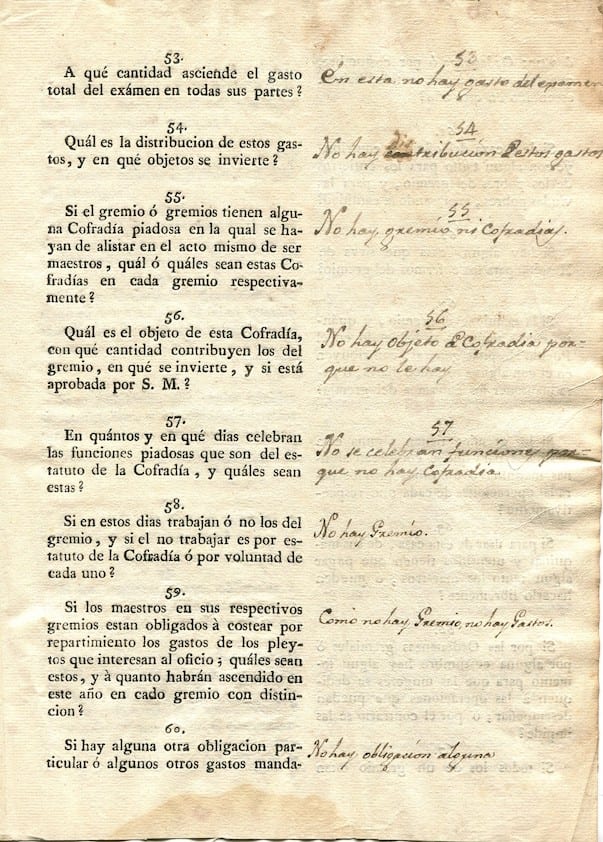 53.
A qué cantidad asciende el gasto
total del exámen en todas sus partes?
53
En esta no hay gasto del examen
54.
Quál es la distribucion de estos gas-
tos, y en qué objetos se invierte?
54
No hay distribución destos gastos
55.
Si el gremio ó gremios tienen algu-
na Cofradía piadosa en la qual se ha-
yan de alistar en el acto mismo de ser
maestros, quál ó quáles sean estas Co-
fradías en cada gremio respectiva-
mente?
55
No hay gremio ni Cofradias.
56.
Quál es el objeto de esta Cofradía,
con qué cantidad contribuyen los del
gremio, en qué se invierte, y si está
aprobada por S. M.?
56
No hay Objeto de Cofradia por-
que no le hay
57.
En quántos y en qué dias celebran
las funciones piadosas que son del es-
tatuto de la Cofradía, y quáles sean
estas?
57
No se celebran funciones por-
que no hay Cofradia
58.
Si en estos dias trabajan ó no los del
gremio, y si el no trabajar es por es-
tatuto de la Cofradía ó por voluntad de
cada uno?
No hay Gremio.
59.
Si los maestros en sus respectivos
gremios estan obligados à costear por
repartimiento los gastos de los pley-
tos que interesan al oficio; quáles sean
estos, y à quanto habrán ascendido en
este año en cado gremio con distin-
cion?
Como no hay Gremio, no hay Gastos.
60.
Si hay alguna otra obligacion par-
ticular ó algunos otros gastos manda-
No hay obligación alguna